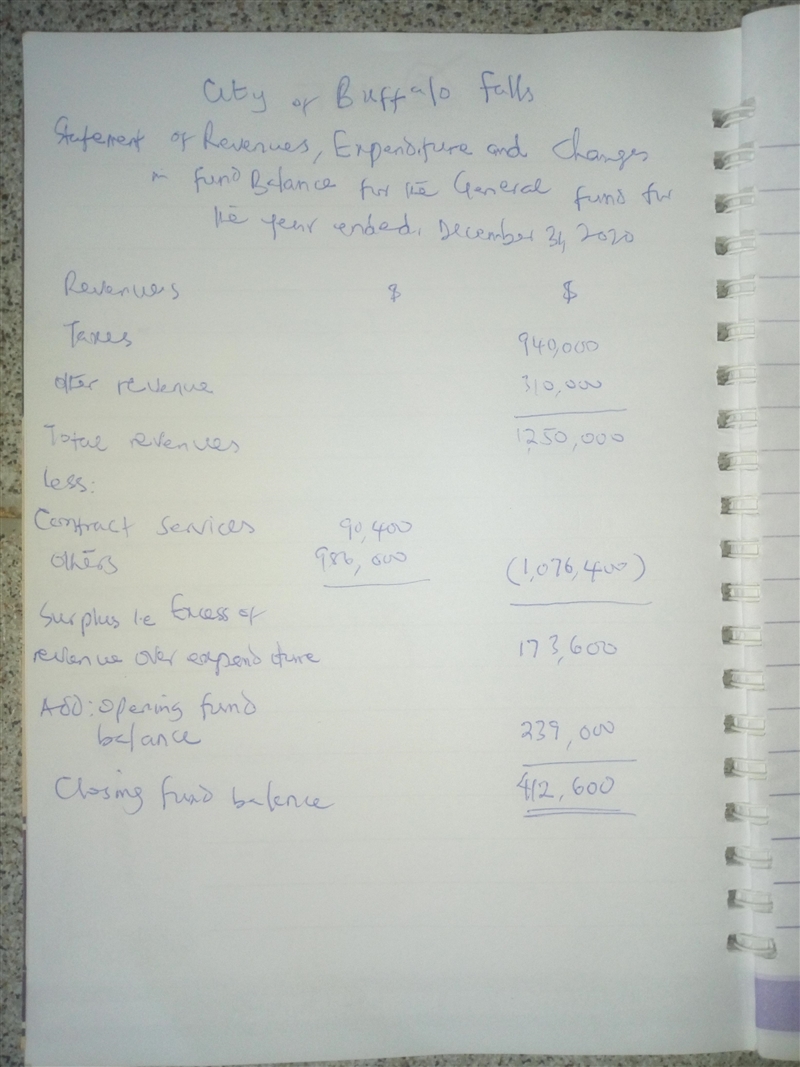 City of Buffalo Falls
Statement of Revenues, Expenditure and Changes
in Fund Balance for the General Fund for
the year ended, December 31, 2020
Revenues $ $
Taxes 940,000
Other revenue 310,000
Total revenues 1,250,000
Less:
Contract Services 90,400
Others 986,000 (1,076,400)
Surplus i.e Excess of
revenue over expenditure 173,600
Add: Opening fund
balance 239,000
Closing fund balance 412,600